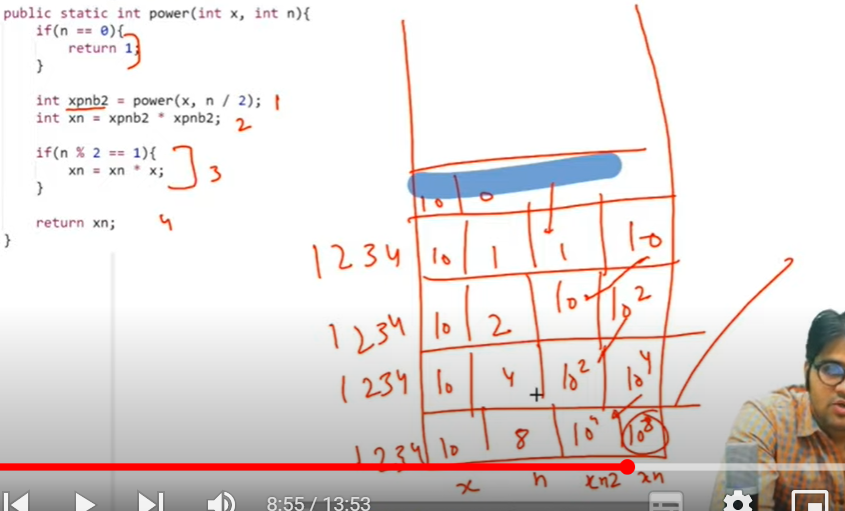 public static int power(int x, int n){
if(n == 0){
return 1;
}
int xpnb2 = power(x, n / 2); 1
int xn = xpnb2 * xpnb2; 2
if(n % 2 == 1){
xn = xn * x; 3
}
return xn; 4
}
10 0
1 2 3 4 10 1 1 10
1 2 3 4 10 2 10 10²
1 2 3 4 10 4 10² 10⁴
1 2 3 4 10 8 10⁴ 10⁸
x n xn2 xn
8:55 / 13:53